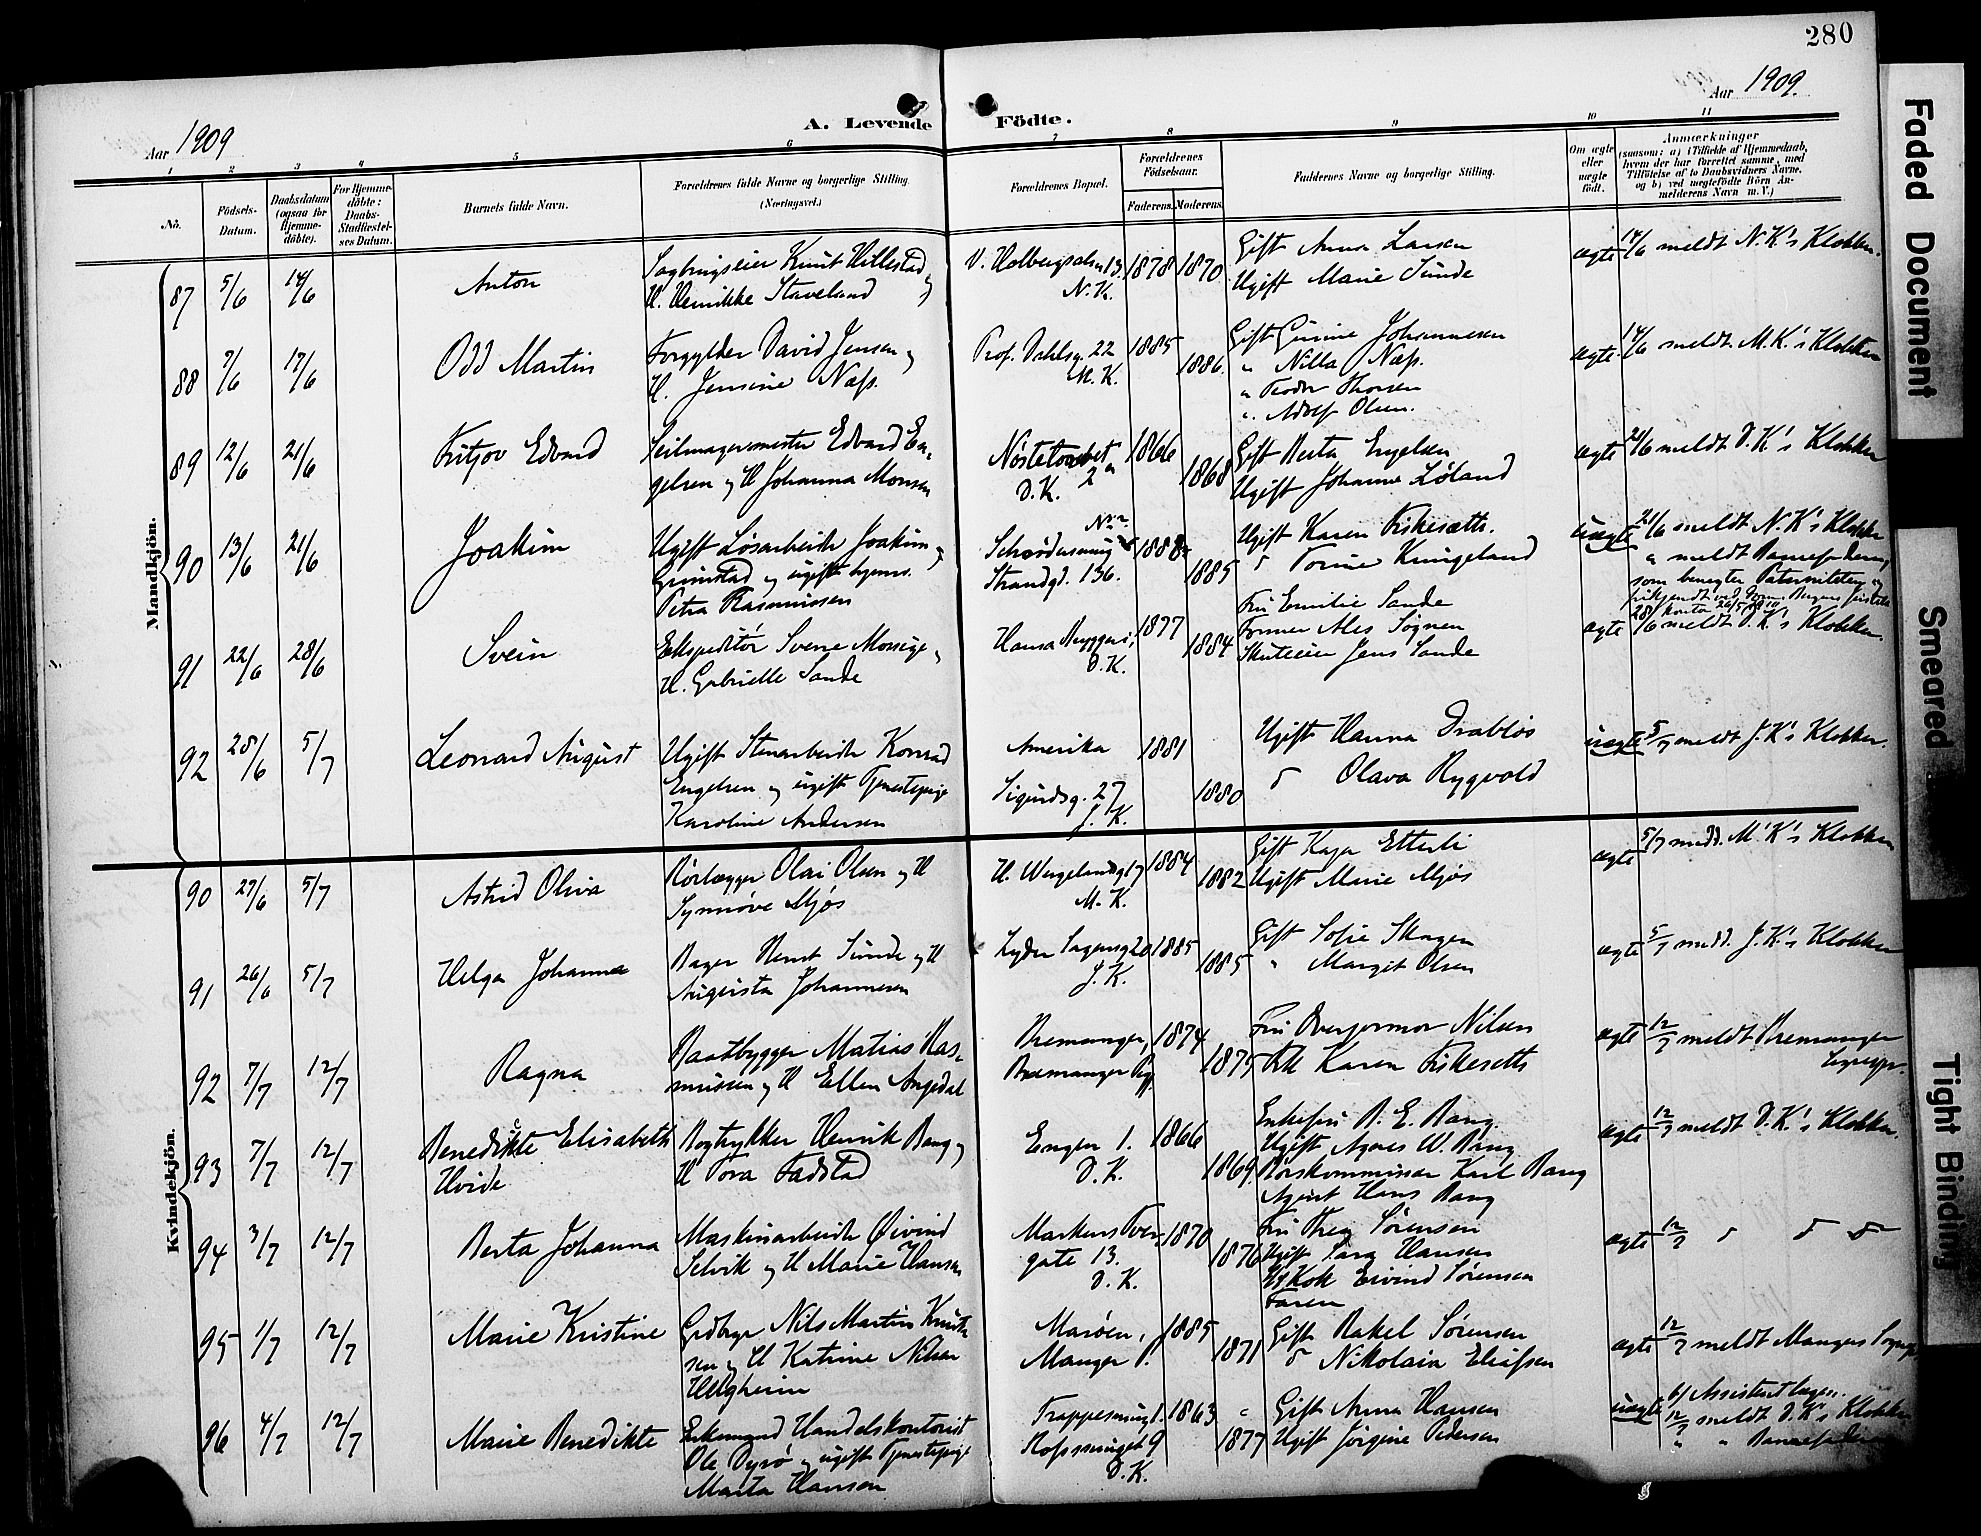 280
Aar 1909
A. Levende Födte.
Aar 1909.
1 2 3 4 5 6 7 8 9 10 11
No.
Födsels-Datum.
Daabsdatum (ogsaa for Hjemme-döbte).
For Hjemme-döbte: Daabs-Stadfæstel-ses Datum.
Barnets fulde Navn.
Forældrenes fulde Navne og borgerlige Stilling.
(Næringsvei.)
Forældrenes Bopæl.
Forældrenes Födselsaar.
Faderens. Moderens.
Faddernes Navne og borgerlige Stilling.
Om ægte eller uægte födt.
Anmærkninger
(saasom: a) i Tilfælde af Hjemmedaab,
hvem der har forrettet samme, med
Tilföielse af to Daabsvidners Navne,
og b) ved uægtefödte Börn An-
melderens Navn m. V.)
Mandkjön.
87 5/6 14/6 Anton
Knut Hillestad
H. Henrikke Staveland
N.K.
1878 1870
Gift Anna Larsen
Ugift Marie Sunde
ægte 14/6 meldt N.K's Klokker.
88 7/6 17/6 Odd Martin
Forgylder David Jensen og
H. Jensine Næss.
Prof. Dahlsg. 22
M.K.
1885 1886.
Gift Gurine Johannesen
" Nilla Næss.
" Thorsen
" Adolf Olsen.
ægte 17/6 meldt M.K.'s Klokker
89 12/6 21/6 Fritjov Edvard
Seilmagermester Edvard En-
gelsen og H Johanna Monsen
Nøstetorvet 2
D.K.
1866 1868
Gift Berta Engelsen
Ugift Johanna Løland
ægte 21/6 meldt D.K.'s Klokker
90 13/6 21/6 Joakim
Ugift Løsarbeider Joakim
Grimstad og ugift
Petra Rasmussen
Strandgd. 136.
1888 1885
Ugift Karen Fiskesæth.
uægte 21/6 meldt N.K's Klokker
" meldt Barnefaderen,
som benegter Paterniteten
91 22/6 28/6 Svein
Ekspeditør Sverre Monsige
H. Gabrielle Sande
Hansa Bryggeri,
D.K.
1877 1884
Fru Emilie Sande
Jens Sande
ægte 28/6 meldt D.K.'s Klokker.
92 28/6 5/7 Leonard August
Ugift Stenarbeider Konrad
Engelsen og ugift Tjenestepige
Karoline Andersen
Amerika
Sigurdsg. 27
J.K.
1881 1880
Ugift Hanna Drabløs
Olava Rygvold
uægte 5/7 meldt J.K's Klokker.
Kvindekjön.
90 27/6 5/7 Astrid Oliva
Rørlægger Olai Olsen og H
Synnøve Mjøs
H. Wergelandsg 17
M.K.
1884 1882
Gift Kaja Etterli
Ugift Marie Mjøs
ægte 5/7 medd. M.K.'s Klokker
91 26/6 5/7 Helga Johanna
Bager Bernt Sunde og H
Augusta Johannesen
Lyder Sagensg 20
J.K.
1885 1885
Gift Sofie Skagen
" Margit Olsen
ægte 5/7 medd. J.K.'s Klokker
92 7/7 12/7 Ragna
Baatbygger Matias Ras-
mussen og H Ellen Angedal
Bremanger,
Bremanger Pg.
1874 1875
Fru Overjormor Nilsen
Frk Karen Fiskeseth
ægte 12/7 meldt Bremanger
Sognepr.
93 7/7 12/7 Benedicte Elisabeth
Hvide
Bogtrykker Henrik Bang og
H Tora Fadstad
Engen 1.
D.K.
1866 1869.
Enkefru B. E. Bang
Ugift Agnes W. Bang
Børskommissær Karl Bang
Agent Hans Bang
ægte 12/7 meldt D.K.'s Klokker.
94 3/7 12/7 Berta Johanna
Maskinarbeider Øivind
Selvik og H Marie Hansen
Markens Tver-
gate 13.
D.K.
1870 1876
Sørensen
Ugift Sara Hansen
Kok Eivind Sørensen
Faren
ægte 12/7
95 1/7 12/7 Marie Kristine
Grdbrgr Nils Martin Knut-
sen og H Katrine Nilsen
Helgheim
Marøen,
Manger P.
1885 1871
Gift Rakel Sørensen
Nikolaia Eliassen
ægte 12/7 meldt Mangers Sognepr
96 4/7 12/7 Marie Benedikte
Enkemand Handelskontorist
Ole Dyrø og ugift Tjenestepige
Marta Hansen
Trappesmug 1.
9
D.K.
1863 1877
Gift Anna Hansen
Ugift Jørgine Pedersen
uægte 12/7 meldt D.K's Klokker
" " Barnefaderen
Faded Document
Smeared
Tight Binding